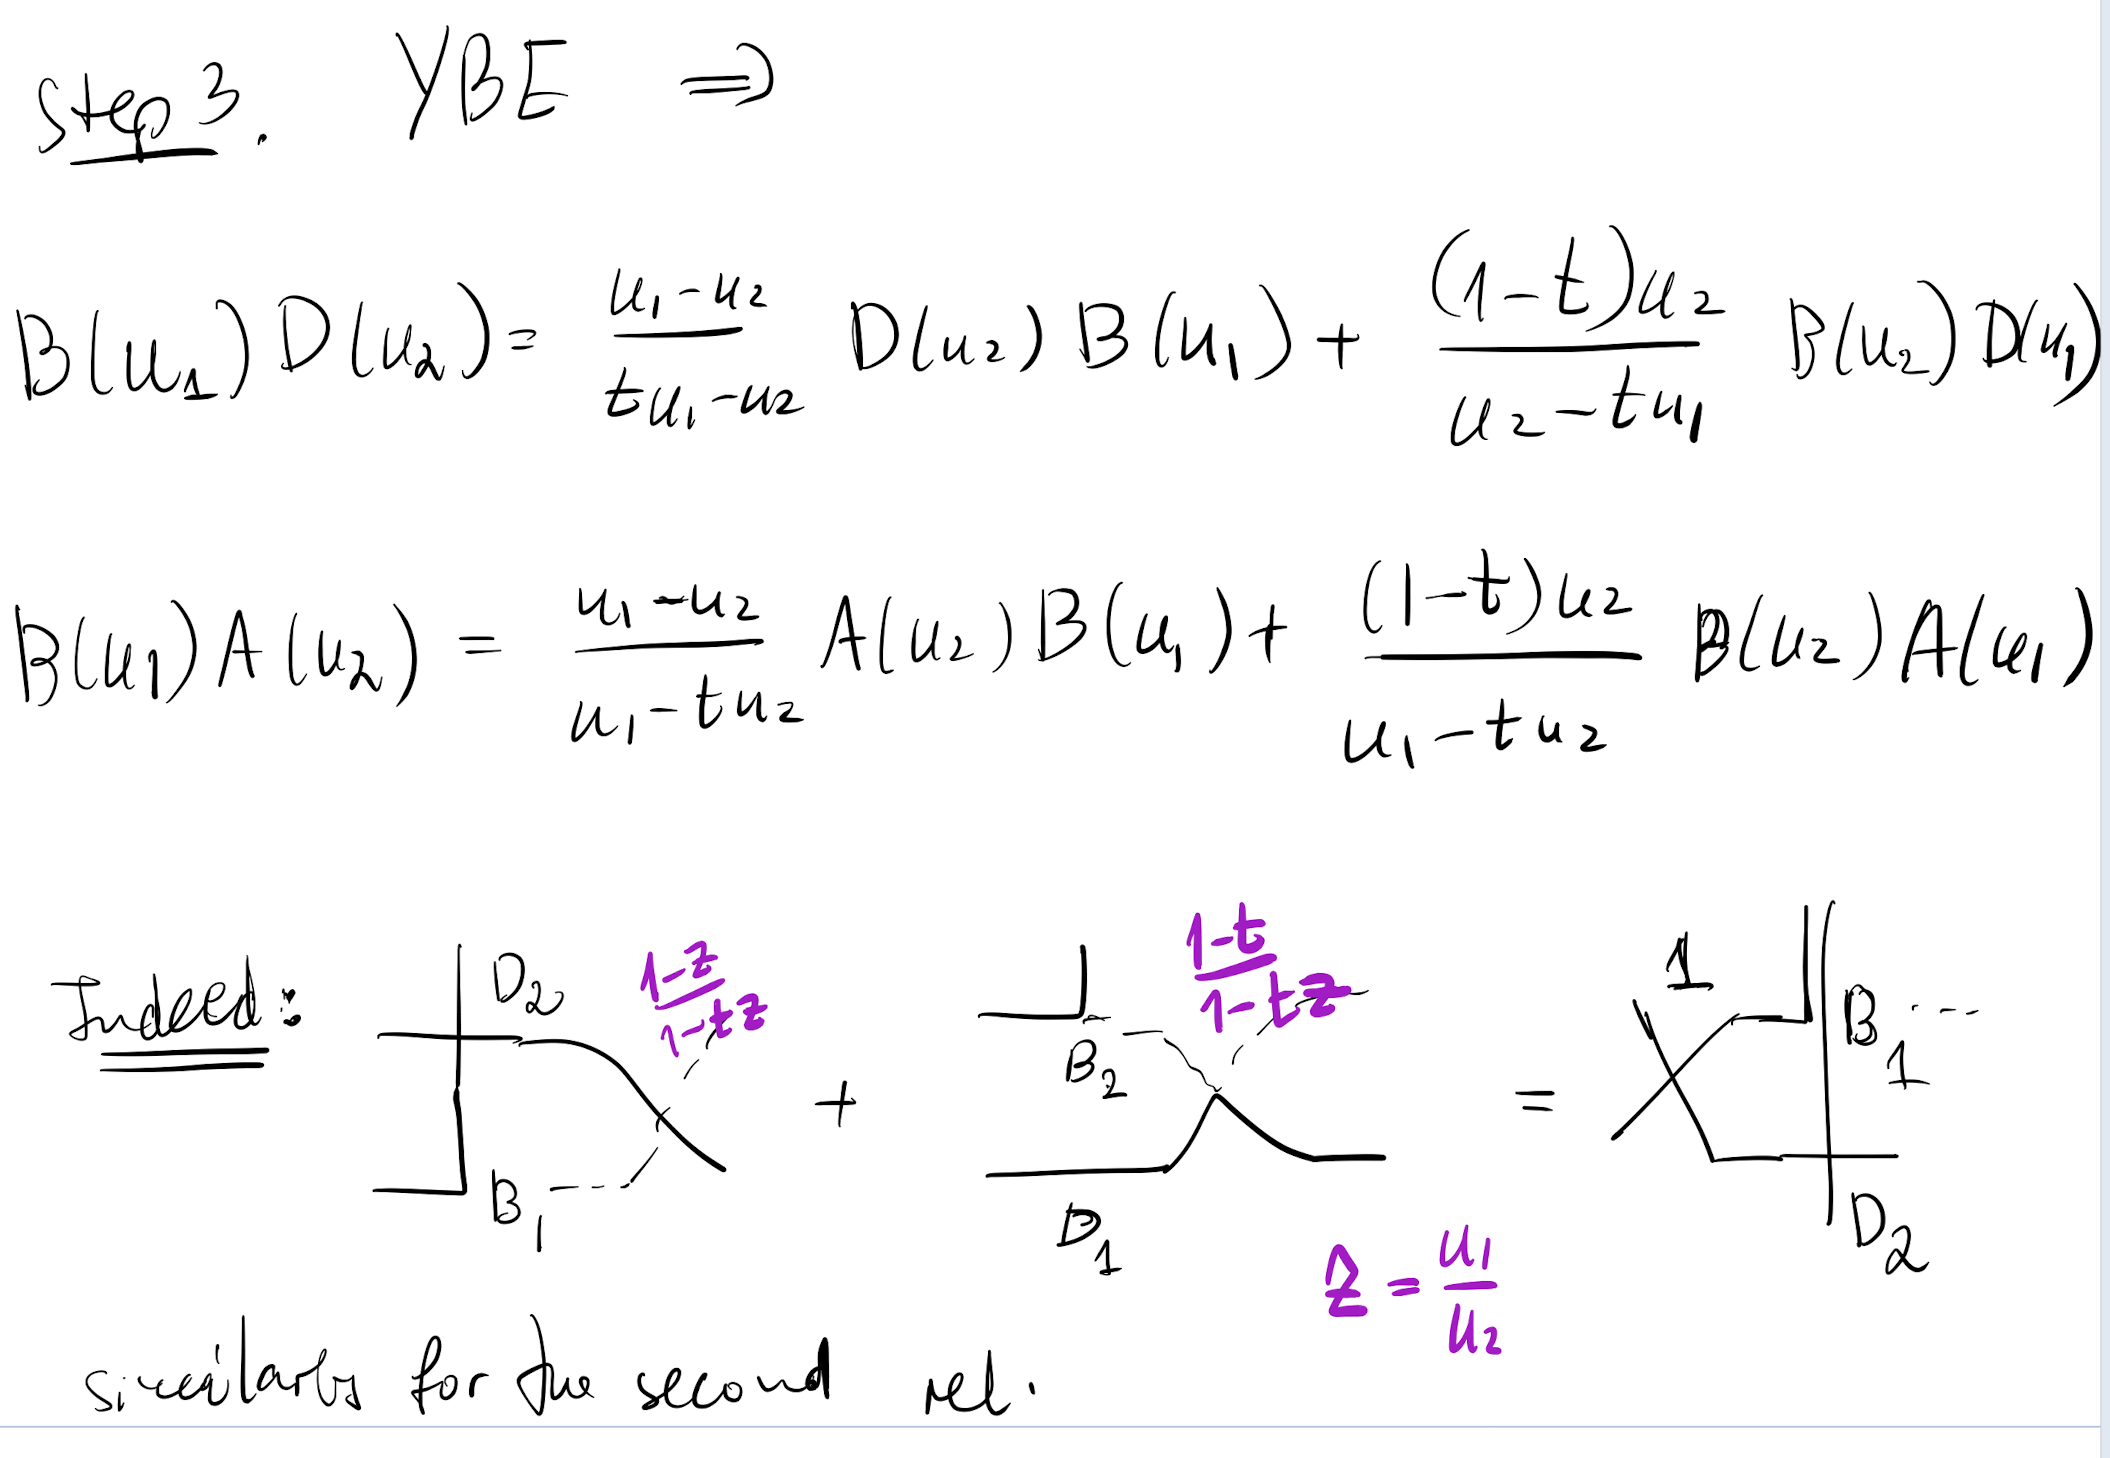 Step 3. YBE ⇒
B(u₁) D(u₂) = (u₁-u₂)/(tu₁-u₂) D(u₂) B(u₁) + ((1-t)u₂)/(u₂-tu₁) B(u₂) D(u₁)
B(u₁) A(u₂) = (u₁-u₂)/(u₁-tu₂) A(u₂) B(u₁) + ((1-t)u₂)/(u₁-tu₂) B(u₂) A(u₁)
Indeed: D₂ B₁ (1-z)/(1-tz) + B₂ D₁ (1-t)/(1-tz) = 1 B₁ D₂
z = u₁/u₂
similarly for the second rel.